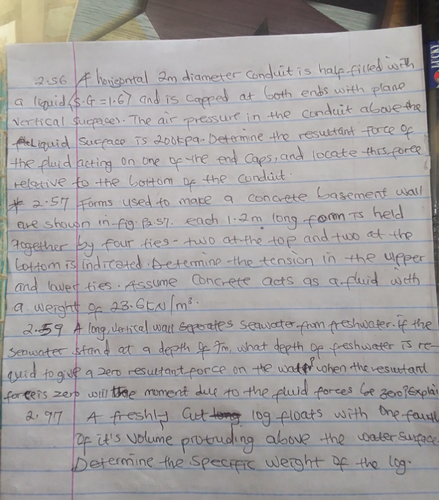 2.56 A horizontal 2m diameter conduit is half-filled with
a liquid (S.G = 1.6) and is capped at both ends with plane
vertical surfaces. The air pressure in the conduit above the
liquid surface is 200kpa. Determine the resultant force of
the fluid acting on one of the end caps, and locate this force
relative to the bottom of the conduit.
* 2.57 Forms used to make a concrete basement wall
are shown in fig. P2.57. each 1.2m long form is held
together by four ties - two at the top and two at the
bottom is indicated. Determine the tension in the upper
and lower ties. Assume concrete acts as a fluid with
a weight of 23.6kN/m³.
2.59 A long, vertical wall seperates seawater from freshwater. if the
seawater stand at a depth of 7m, what depth of freshwater is re-
quid to give a zero resultant force on the wall? when the resultant
force is zero will the moment due to the fluid forces be zero? Explain
2.97 A freshly cut log floats with one-fourth
of it's volume protruding above the water surface.
Determine the specific weight of the log.
LUCKY